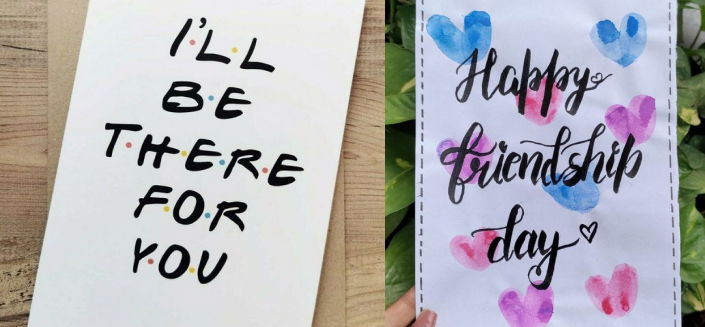 I'LL
BE
THERE
FOR
YOU
Happy
friendship
day